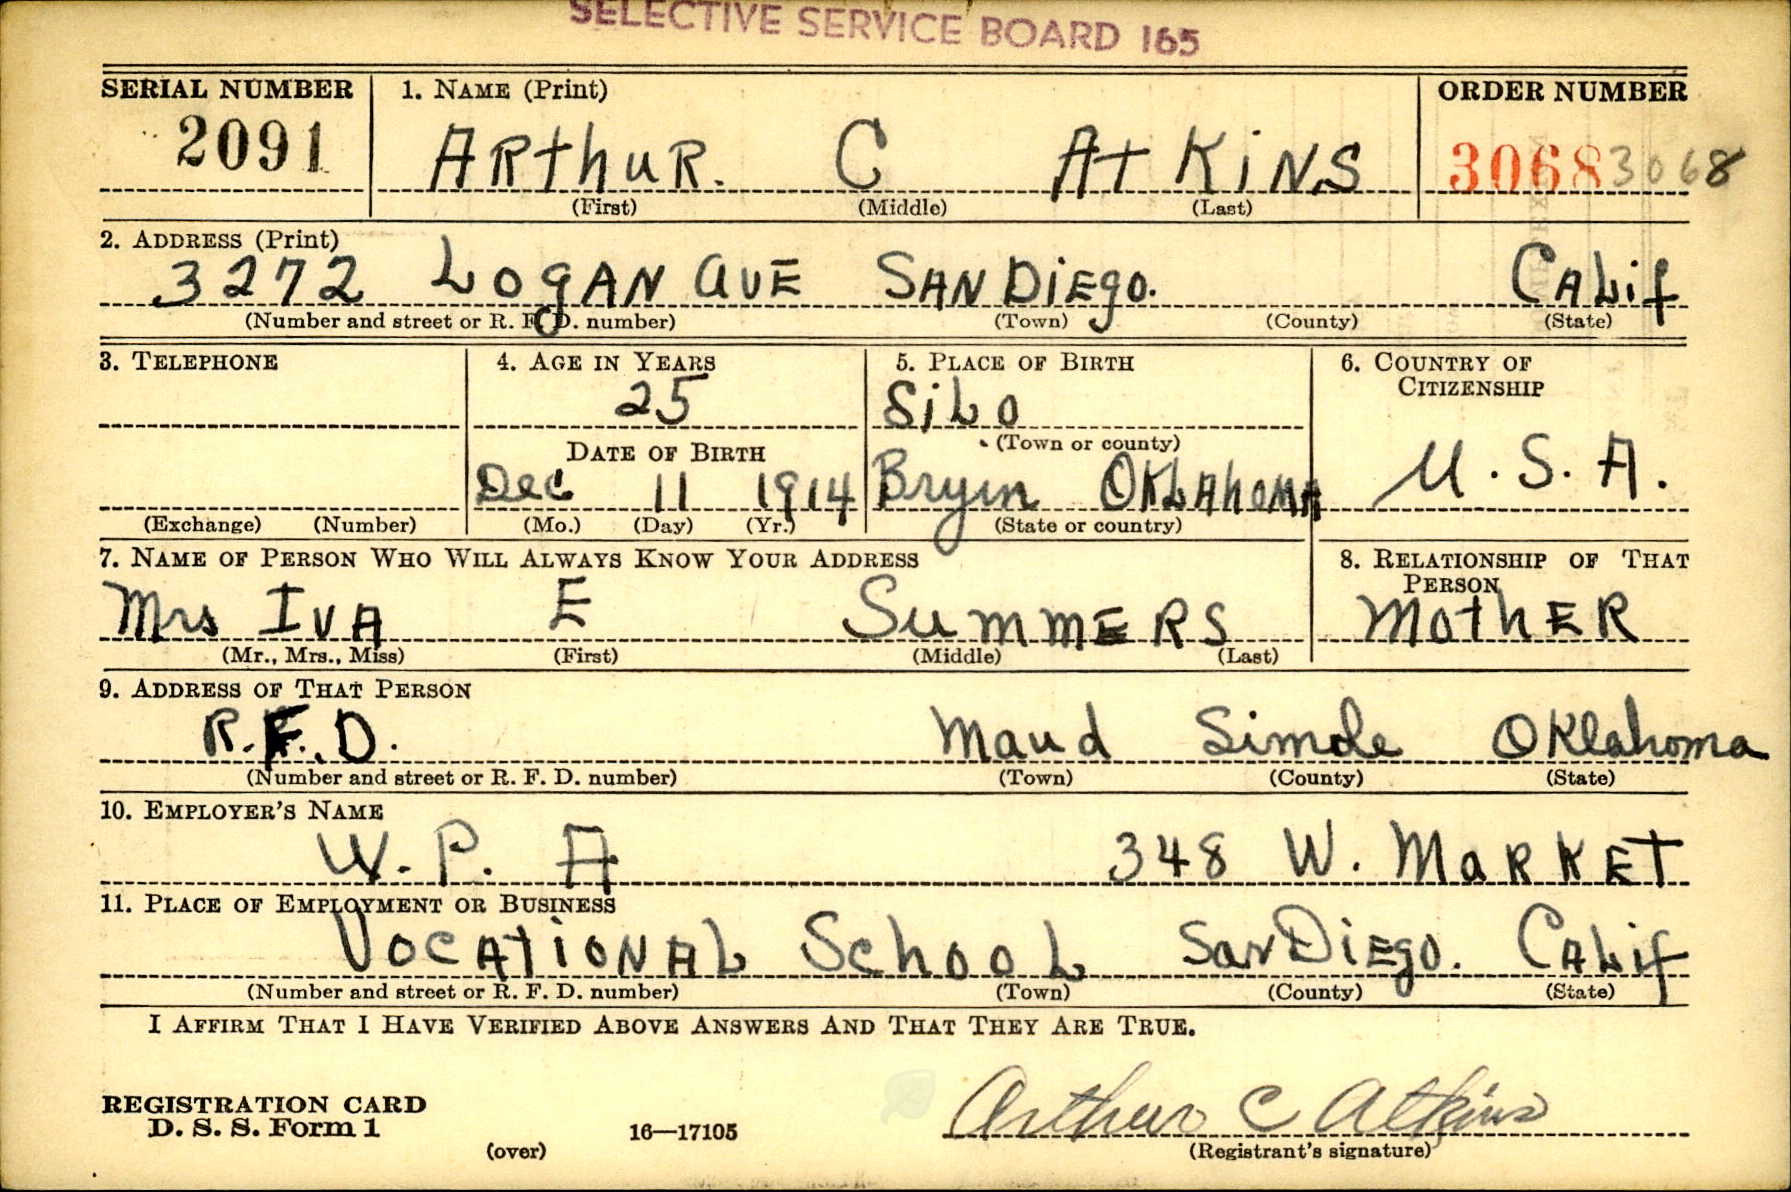 SELECTIVE SERVICE BOARD 165
SERIAL NUMBER 1. NAME (Print) ORDER NUMBER
2091 ARthuR. C AtKiNS 3068 3068
(First) (Middle) (Last)
2. ADDRESS (Print)
3272 LOgAN AVE SAN DiEgo. CALif
(Number and street or R. F. D. number) (Town) (County) (State)
3. TELEPHONE 4. AGE IN YEARS 5. PLACE OF BIRTH 6. COUNTRY OF CITIZENSHIP
25 SiLo
DATE OF BIRTH (Town or county)
Dec 11 1914 Bryin OKLAhOMA U.S.A.
(Exchange) (Number) (Mo.) (Day) (Yr.) (State or country)
7. NAME OF PERSON WHO WILL ALWAYS KNOW YOUR ADDRESS 8. RELATIONSHIP OF THAT PERSON
Mrs IVA E SummERS MothER
(Mr., Mrs., Miss) (First) (Middle) (Last)
9. ADDRESS OF THAT PERSON
R.F.D. Maud Simole Oklahoma
(Number and street or R. F. D. number) (Town) (County) (State)
10. EMPLOYER'S NAME
W.P. A 348 W. MaRKET
11. PLACE OF EMPLOYMENT OR BUSINESS
VOCATiONAL SchooL San DiEgo. CALif
(Number and street or R. F. D. number) (Town) (County) (State)
I AFFIRM THAT I HAVE VERIFIED ABOVE ANSWERS AND THAT THEY ARE TRUE.
REGISTRATION CARD
D. S. S. Form 1
(over) 16—17105
Arthur C Atkins
(Registrant's signature)